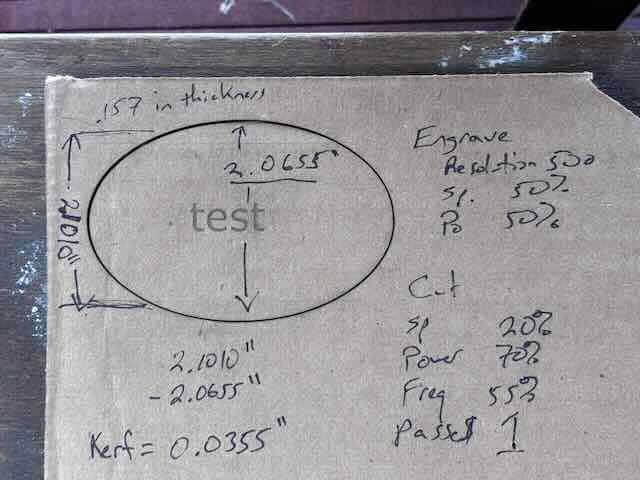 .157 in thickness
2.1010"
2.0655"
test
2.1010"
- 2.0655"
Kerf = 0.0355"
Engrave
Resolution 500
Sp. 50%
Po 50%
Cut
Sp 20%
Power 70%
Freq 55%
Passes 1